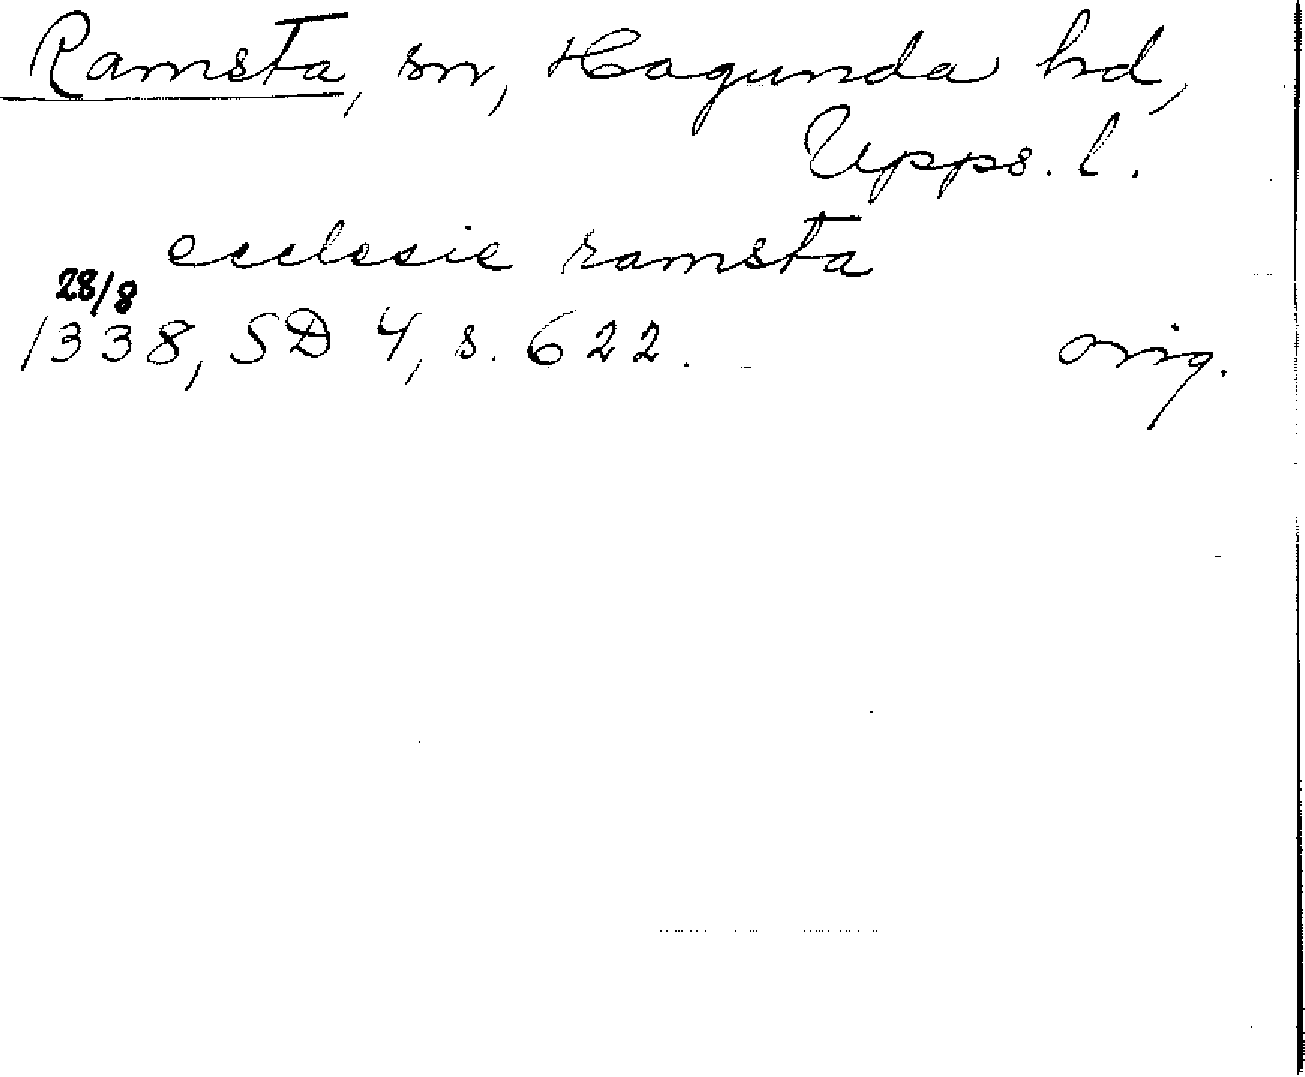 Ramsta, sn, Hagunda hd,
Upps. l.
ecclesie ramsta
28/8
1338, SD 4, s. 622.
orig.